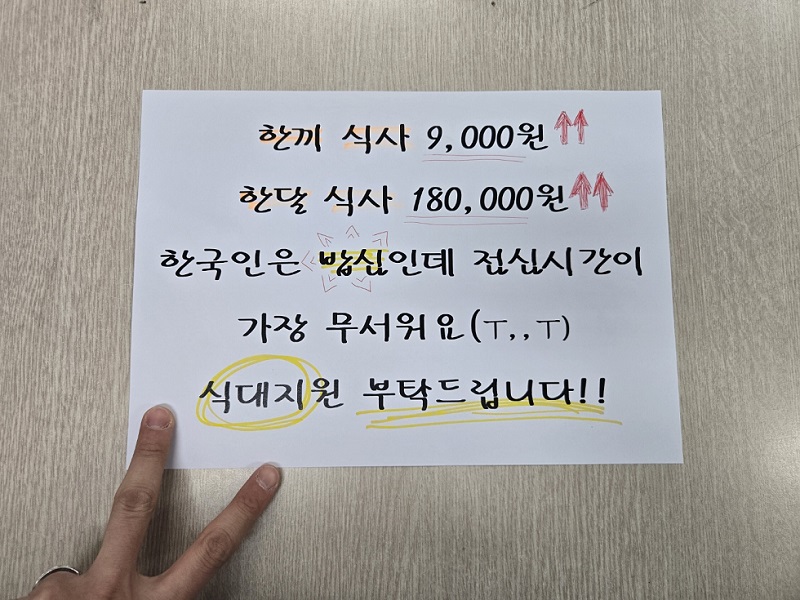 한끼 식사 9,000원
한달 식사 180,000원
한국인은 밥심인데 점심시간이
가장 무서워요(ㅜ,,ㅜ)
식대지원 부탁드립니다!!